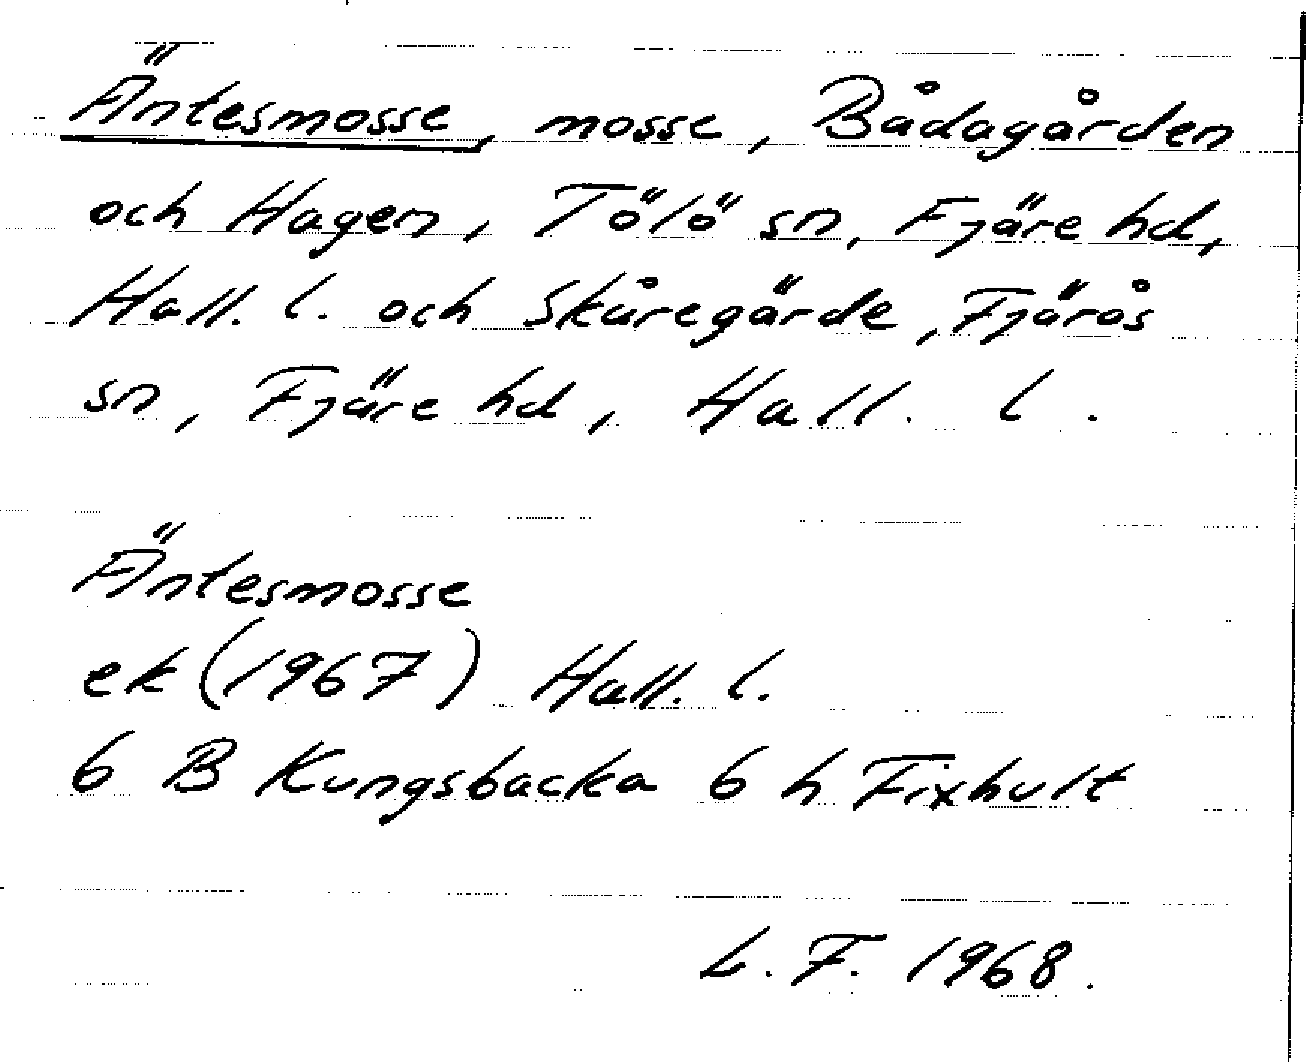 Äntesmosse, mosse, Bådagården
och Hagen, Tölö sn, Fjäre hd,
Hall. l. och Skåregärde, Fjärås
sn, Fjäre hd, Hall. l.
Äntesmosse
ek (1967) Hall. l.
6 B Kungsbacka 6 h Fixhult
L. F. 1968.